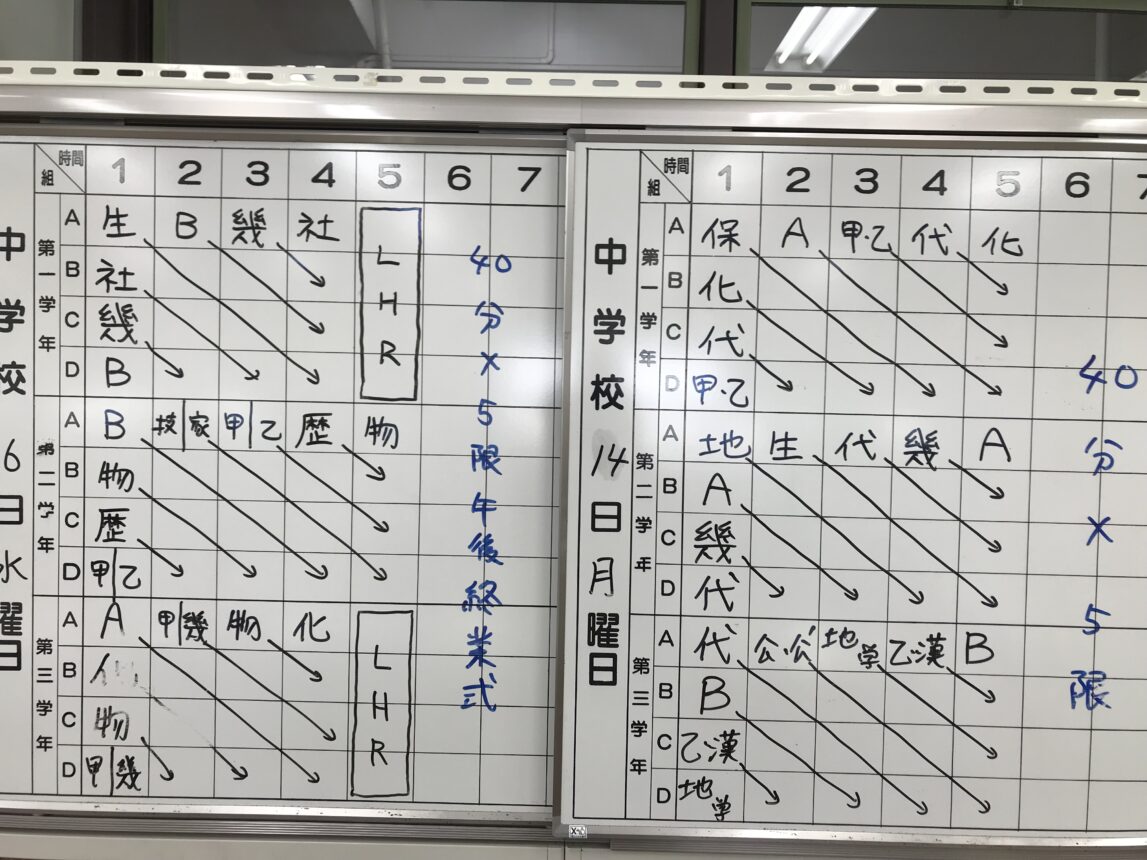 中学校 6日水曜日
時間 1 2 3 4 5 6 7
組
第一学年
A 生 B 幾 社
B 社
C 幾
D B
LHR
第二学年
A B 技|家 甲|乙 歴 物
B 物
C 歴
D 甲|乙
第三学年
A A 甲|幾 物 化
B 化
C 物
D 甲|幾
LHR
40分×5限午後終業式
中学校 14日月曜日
時間 1 2 3 4 5 6 7
組
第一学年
A 保 A 甲・乙 代 化
B 化
C 代
D 甲・乙
第二学年
A 地 生 代 幾 A
B A
C 幾
D 代
第三学年
A 代 公・公 地学 乙・漢 B
B B
C 乙・漢
D 地学
40分×5限